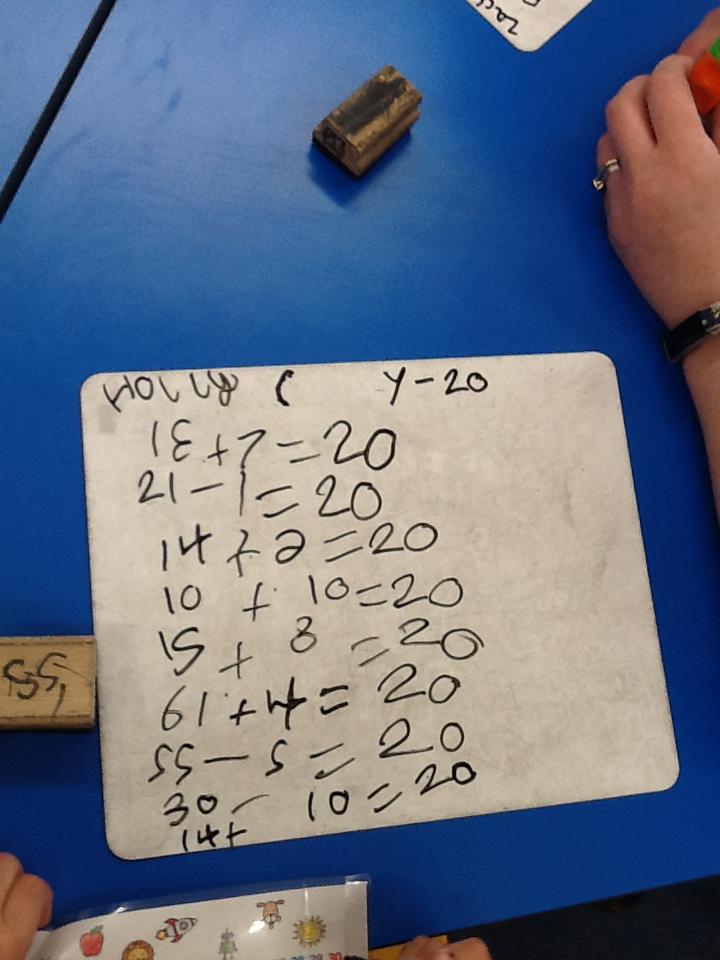 y-20
13+7=20
21-1=20
14+2=20
10 + 10=20
15 + 8 =20
61+4=20
55-5=20
30- 10=20
14+